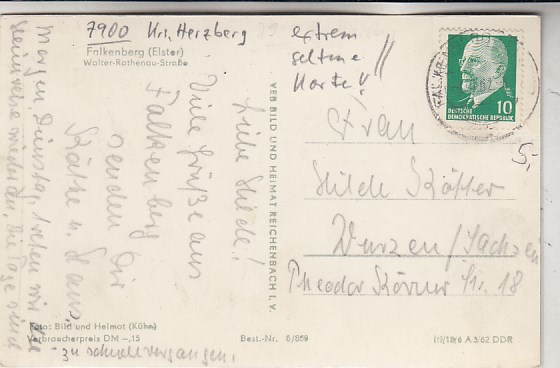 7900 Krs. Herzberg
Falkenberg (Elster)
Walter-Rathenau-Straße
extrem
seltene
Karte!!
DEUTSCHE
DEMOKRATISCHE REPUBLIK
10
5,-
VEB BILD UND HEIMAT REICHENBACH I. V.
Liebe Hilde!
Viele Grüße aus
Falkenberg
senden Dir
Käthe u. Hans
Morgen Dienstag, treten wir die
Heimreise wieder an, die Tage sind
zu schnell vergangen.
Frau
Hilde Köhler
Wurzen/Sachsen
Theodor Körner Str. 18
Foto: Bild und Heimat (Kühn)
Verbraucherpreis DM -,15
Best.-Nr. 6/869
A 3/62 DDR